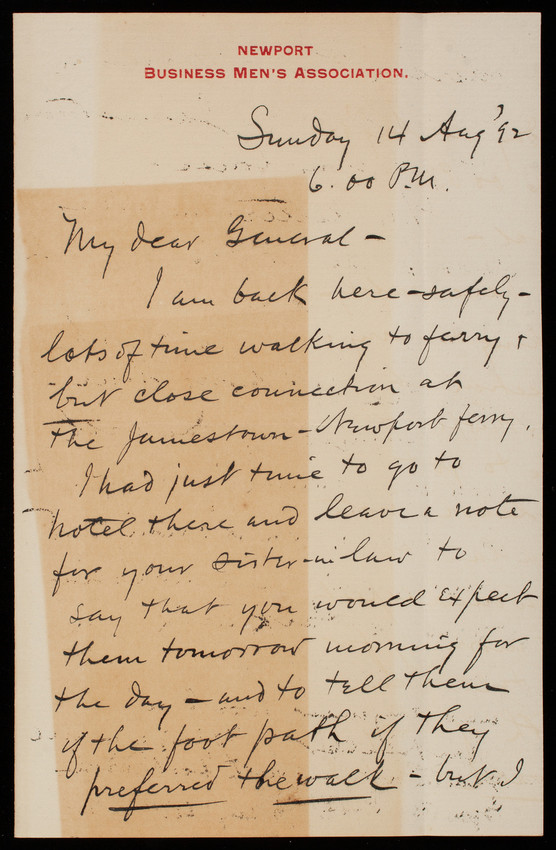 NEWPORT
BUSINESS MEN'S ASSOCIATION.
Sunday 14 Aug '92
6.00 P.M.
My dear General -
I am back here - safely -
lots of time walking to ferry +
but close connection at
the Jamestown - Newport ferry.
I had just time to go to
hotel there and leave a note
for your sister-in law to
say that you would expect
them tomorrow morning for
the day - and to tell them
of the foot path if they
preferred the walk - but I